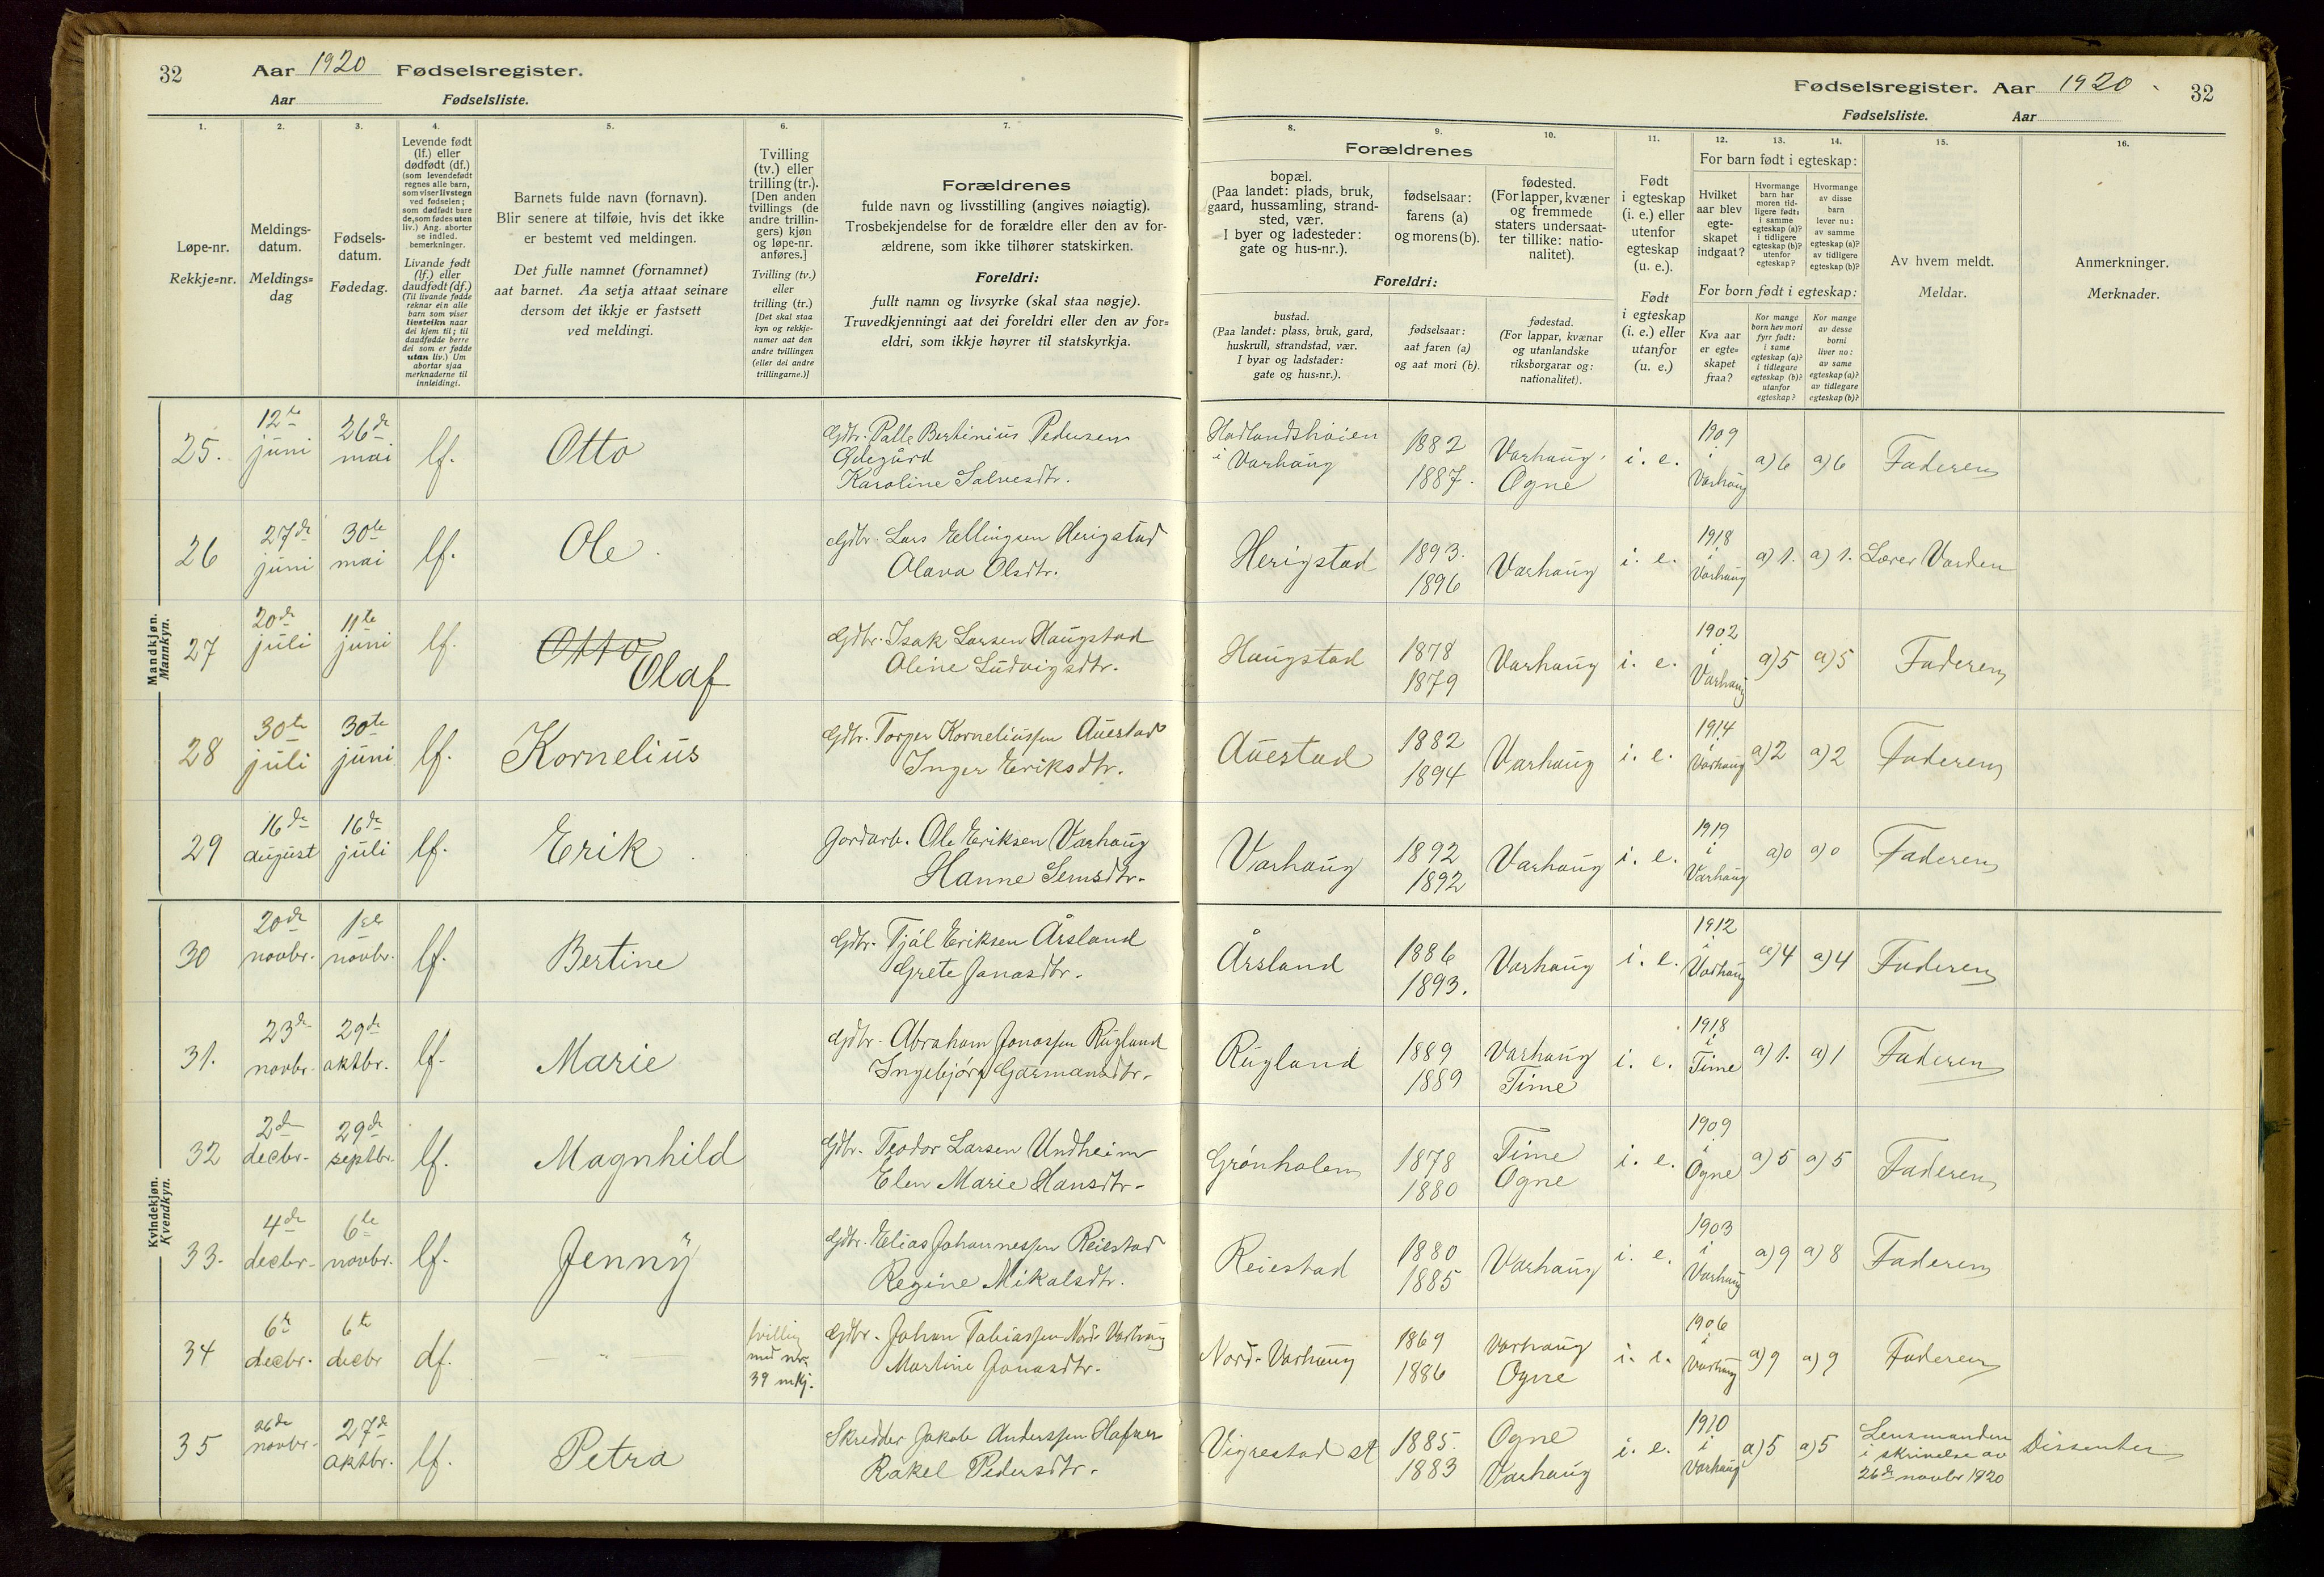 32 Aar 1920 Fødselsregister.
Aar Fødselsliste.
Fødselsregister. Aar 1920. 32
Fødselsliste. Aar
1.
Løpe-nr.
Rekkje=nr.
2.
Meldings-
datum.
Meldings=
dag
3.
Fødsels-
datum.
Fødedag.
4.
Levende født
(lf.) eller
dødfødt (df.)
(som levendefødt
regnes alle barn,
som viser livstegn
ved fødselen;
som dødfødt bare
de, som fødes uten
liv.) Ang. aborter
se indled.
bemerkninger.
Livande født
(lf.) eller
daudfødt (df.)
(Til livande fødde
reknar ein alle
barn som viser
livsteikn naar
dei kjem til; til
daudfødde berre
dei som er fødde
utan liv.) Um
abortar sjaa
merknaderne til
innleidingi.
5.
Barnets fulde navn (fornavn).
Blir senere at tilføie, hvis det ikke
er bestemt ved meldingen.
Det fulle namnet (fornamnet)
aat barnet. Aa setja attaat seinare
dersom det ikkje er fastsett
ved meldingi.
6.
Tvilling
(tv.) eller
trilling (tr.).
[Den anden
tvillings (de
andre trillin-
gers) kjøn
og løpe-nr.
anføres.]
Tvilling (tv.)
eller
trilling (tr.)
[Det skal staa
kyn og rekkje-
numer aat den
andre tvillingen
(eller dei andre
trillingarne.)]
7.
Forældrenes
fulde navn og livsstilling (angives nøiagtig).
Trosbekjendelse for de forældre eller den av for-
ældrene, som ikke tilhører statskirken.
Foreldri:
fullt namn og livsyrke (skal staa nøgje).
Truvedkjenningi aat dei foreldri eller den av for-
eldri, som ikkje høyrer til statskyrkja.
8.
Forældrenes
bopæl.
(Paa landet: plads, bruk,
gaard, hussamling, strand-
sted, vær.
I byer og ladesteder:
gate og hus-nr.).
Foreldri:
bustad.
(Paa landet: plass, bruk, gard,
huskrull, strandstad, vær.
I byar og ladstader:
gate og hus=nr.).
9.
fødselsaar:
farens (a)
og morens (b).
fødselsaar:
aat faren (a)
og aat mori (b).
10.
fødested.
(For lapper, kvæner
og fremmede
staters undersaat-
ter tillike: natio-
nalitet).
fødestad.
(For lappar, kvænar
og utanlandske
riksborgarar og:
nationalitet).
11.
Født
i egteskap
(i. e.) eller
utenfor
egteskap
(u. e.).
Født
i egteskap
(i. e.) eller
utanfor
(u. e.)
For barn født i egteskap:
12.
Hvilket
aar blev
egte-
skapet
indgaat?
For born født i egteskap:
Kva aar
er egte=
skapet
fraa?
13.
Hvormange
barn har
moren tid-
ligere født:
i samme
egteskap (a)?
i tidligere
egteskap (b)?
utenfor
egteskap?
Kor mange
born hev mori
fyrr født:
i same
egteskap (a)?
i tidlegare
egteskap (b)?
utanfor
egteskap?
14.
Hvormange
av disse
barn
lever nu:
av samme
egteskap (a)?
av tidligere
egteskap (b)?
Kor mange
av desse
borni
liver no:
av same
egteskap (a)?
av tidlegare
egteskap (b)?
15.
Av hvem meldt.
Meldar.
16.
Anmerkninger.
Merknader.
Mandkjøn.
Mannkyn.
25. 12te juni 26de mai lf. Otto Gdbr. Palle Bertinius Pedersen Ødegård Karoline Salvesdtr. Hadlandshøien i Varhaug 1882 1887. Varhaug. Ogne i. e. 1909 i Varhaug a) 6 a) 6 Faderen
26 27de juni 30te mai lf. Ole. Gdbr. Lars Ellingsen Herigstad Olava Olsdtr. Herigstad 1893. 1896 Varhaug i. e. 1918 i Varhaug a) 1. a) 1. Lærer Varden
27 20de juli 11te juni lf. Otto Olaf Gdbr. Isak Larsen Haugstad Oline Ludvigsdtr. Haugstad 1878 1879 Varhaug i. e. 1902 i Varhaug a) 5 a) 5 Faderen
28 30te juli 30te juni lf. Kornelius Gdbr. Torger Korneliussen Auestad Inger Eriksdtr. Auestad 1882 1894 Varhaug i. e. 1914 i Varhaug a) 2 a) 2 Faderen
29 16de august 16de juli lf. Erik Jordarb. Ole Eriksen Varhaug Hanne Jensdtr. Varhaug 1892 1892 Varhaug i. e. 1919 i Varhaug a) 0 a) 0 Faderen
Kvindekjøn.
Kvendkyn.
30 20de novbr. 1ste novbr. lf. Bertine Gdbr. Tjål Eriksen Årsland Grete Jonasdtr. Årsland 1886 1893. Varhaug i. e. 1912 i Varhaug a) 4 a) 4 Faderen
31. 23de novbr. 29de oktbr. lf. Marie Gdbr. Abraham Jonassen Rugland Ingebjørg Garmansdtr. Rugland 1889 1889 Varhaug Time i. e. 1918 i Time a) 1. a) 1 Faderen
32 2den decbr. 29de septbr. lf. Magnhild Gdbr. Teodor Larsen Undheim Elen Marie Hansdtr. Grønholen 1878 1880 Time Ogne i. e. 1909 i Ogne a) 5 a) 5 Faderen
33. 4de decbr. 6te novbr. lf. Jenny Gdbr. Elias Johannessen Reiestad Regine Mikalsdtr. Reiestad 1880 1885 Varhaug i. e. 1903 i Varhaug a) 9 a) 8 Faderen
34 6te decbr. 6te decbr df. — " — tvilling med nr. 39 mkj. Gdbr. Johan Tobiassen Nord-Varhaug Martine Jonasdtr. Nord-Varhaug 1869 1886 Varhaug Ogne i. e. 1906 i Varhaug a) 9 a) 9 Faderen
35 26de novbr. 27de oktbr. lf. Petra Skredder Jakob Anderssen Hafsøe Rakel Pedersdtr. Vigrestad st 1885. 1883 Ogne Varhaug i. e. 1910 i Varhaug a) 5 a) 5 Lensmanden i skrivelse av 26de novbr 1920 Dissenter